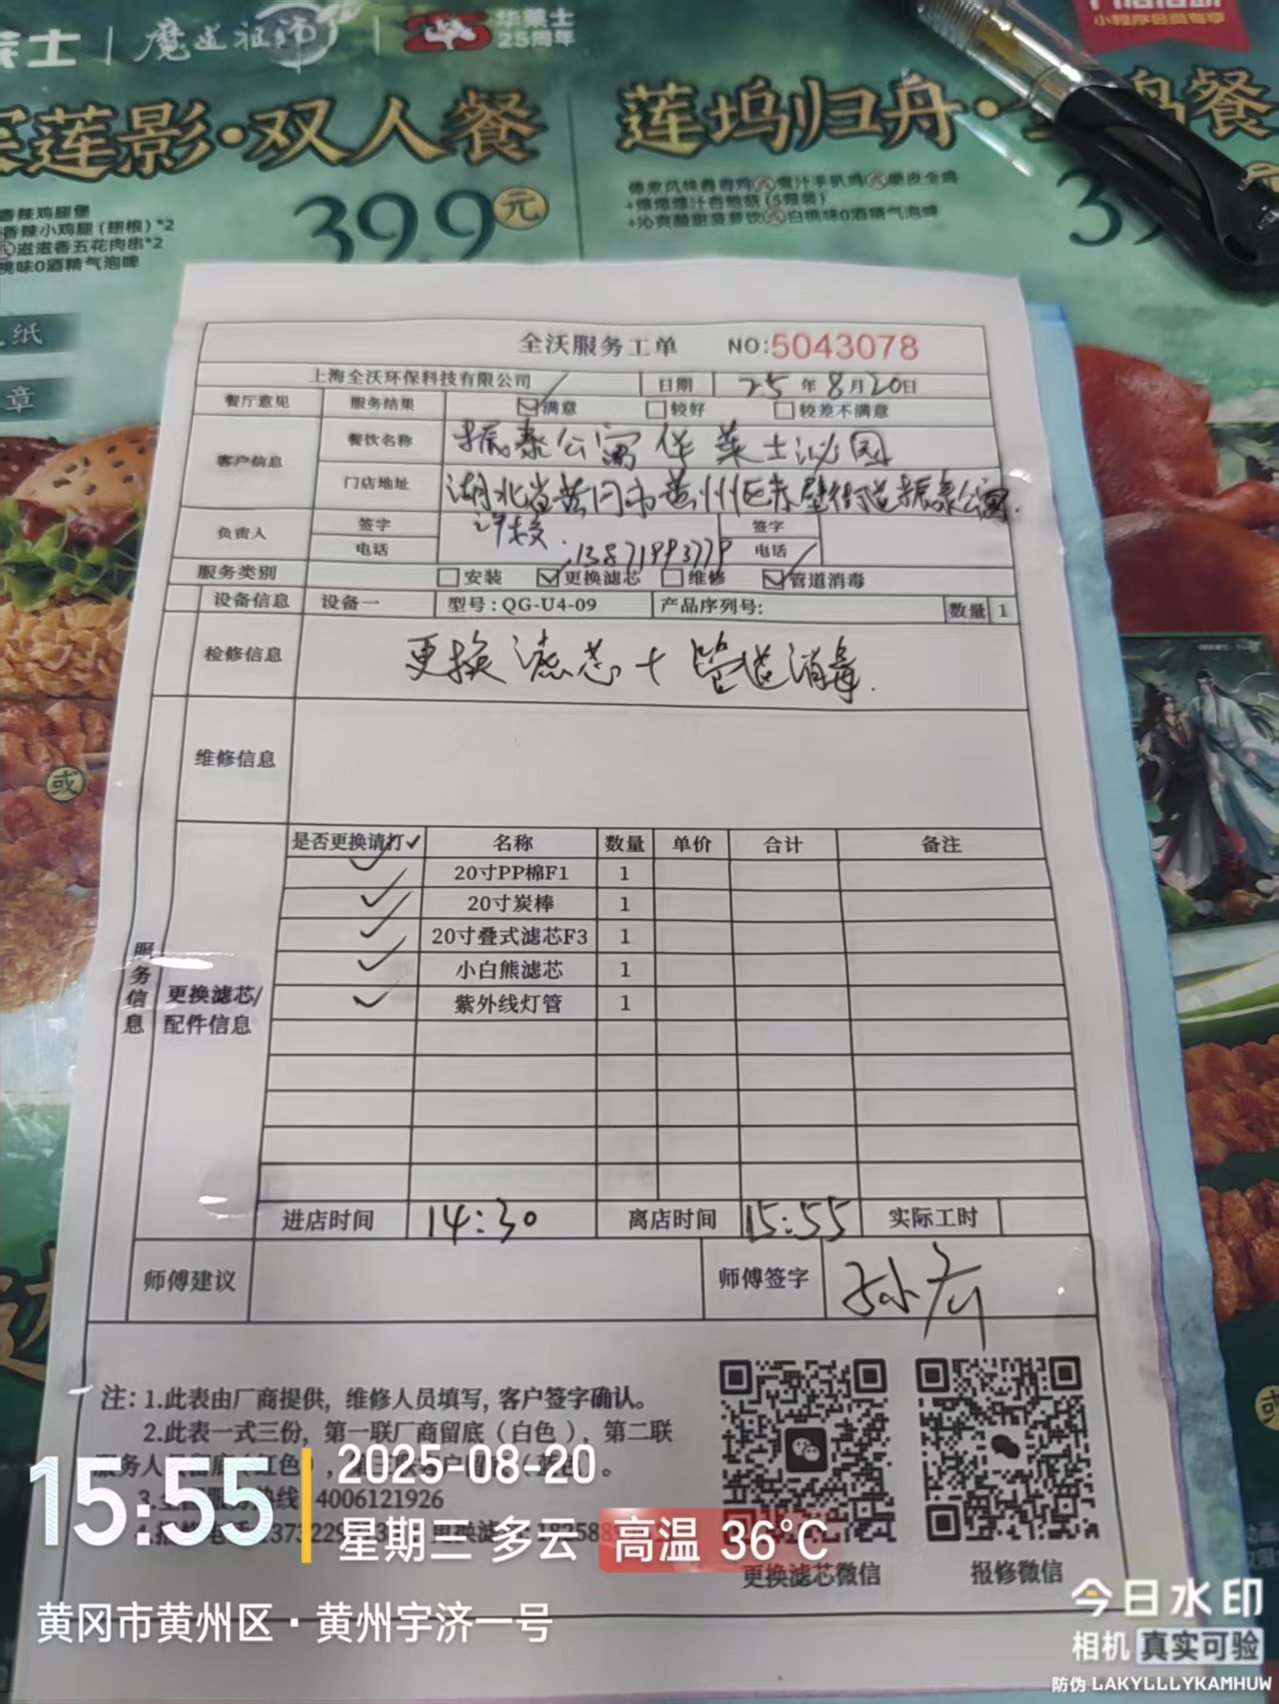 莱士 | 魔道祖师 | 25 华莱士 25周年
小程序会员专享
莲影·双人餐
莲坞归舟·
鸡餐
39.9元
香辣鸡腿堡
香辣小鸡腿(翅根)*2
滋滋香五花肉串*2
桃味0酒精气泡啤
+沁爽酸甜菠萝饮 或 白桃味0酒精气泡啤
纸
章
或
全沃服务工单 NO:5043078
上海全沃环保科技有限公司 日期 25年8月20日
餐厅意见 服务结果 ☑满意 □较好 □较差不满意
客户信息 餐饮名称 振泰公寓华莱士
门店地址 湖北省黄冈市黄州区赤壁街道振泰公寓.
负责人 签字 签字
电话 13871993779 电话
服务类别 □安装 ☑更换滤芯 □维修 ☑管道消毒
设备信息 设备一 型号:QG-U4-09 产品序列号: 数量 1
检修信息 更换滤芯+管道消毒.
维修信息
服务信息
更换滤芯/配件信息
是否更换请打✓ 名称 数量 单价 合计 备注
✓ 20寸PP棉F1 1
✓ 20寸炭棒 1
✓ 20寸叠式滤芯F3 1
✓ 小白熊滤芯 1
✓ 紫外线灯管 1
进店时间 14:30 离店时间 15:55 实际工时
师傅建议 师傅签字
注:1.此表由厂商提供,维修人员填写,客户签字确认。
2.此表一式三份,第一联厂商留底(白色),第二联
服务人
4006121926
更换滤芯微信 报修微信
15:55
2025-08-20
星期三 多云 高温 36°C
黄冈市黄州区·黄州宇济一号
今日水印
相机 真实可验
防伪 LAKYLLLYKAMHUW